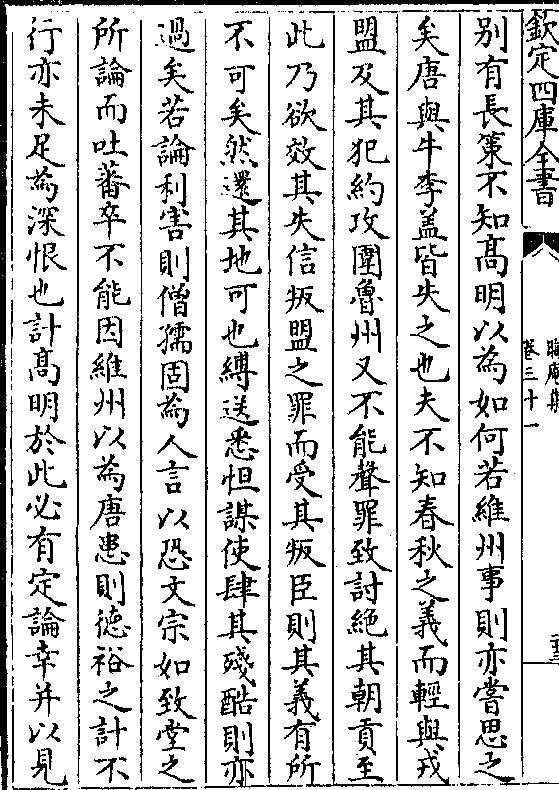 欽定四庫全書
晦庵集
卷三十一
別有長策不知髙明以為如何若維州事則亦嘗思之
矣唐與牛李盖皆失之也夫不知春秋之義而輕與戎
盟及其犯約攻圍魯州又不能聲罪致討絶其朝貢至
此乃欲效其失信叛盟之罪而受其叛臣則其義有所
不可矣然還其地可也縛送悉怛謀使肆其殘酷則亦
過矣若論利害則僧孺固為人言以恐文宗如致堂之
所論而吐蕃卒不能因維州以為唐患則徳裕之計不
行亦未足為深恨也計髙明於此必有定論幸并以見